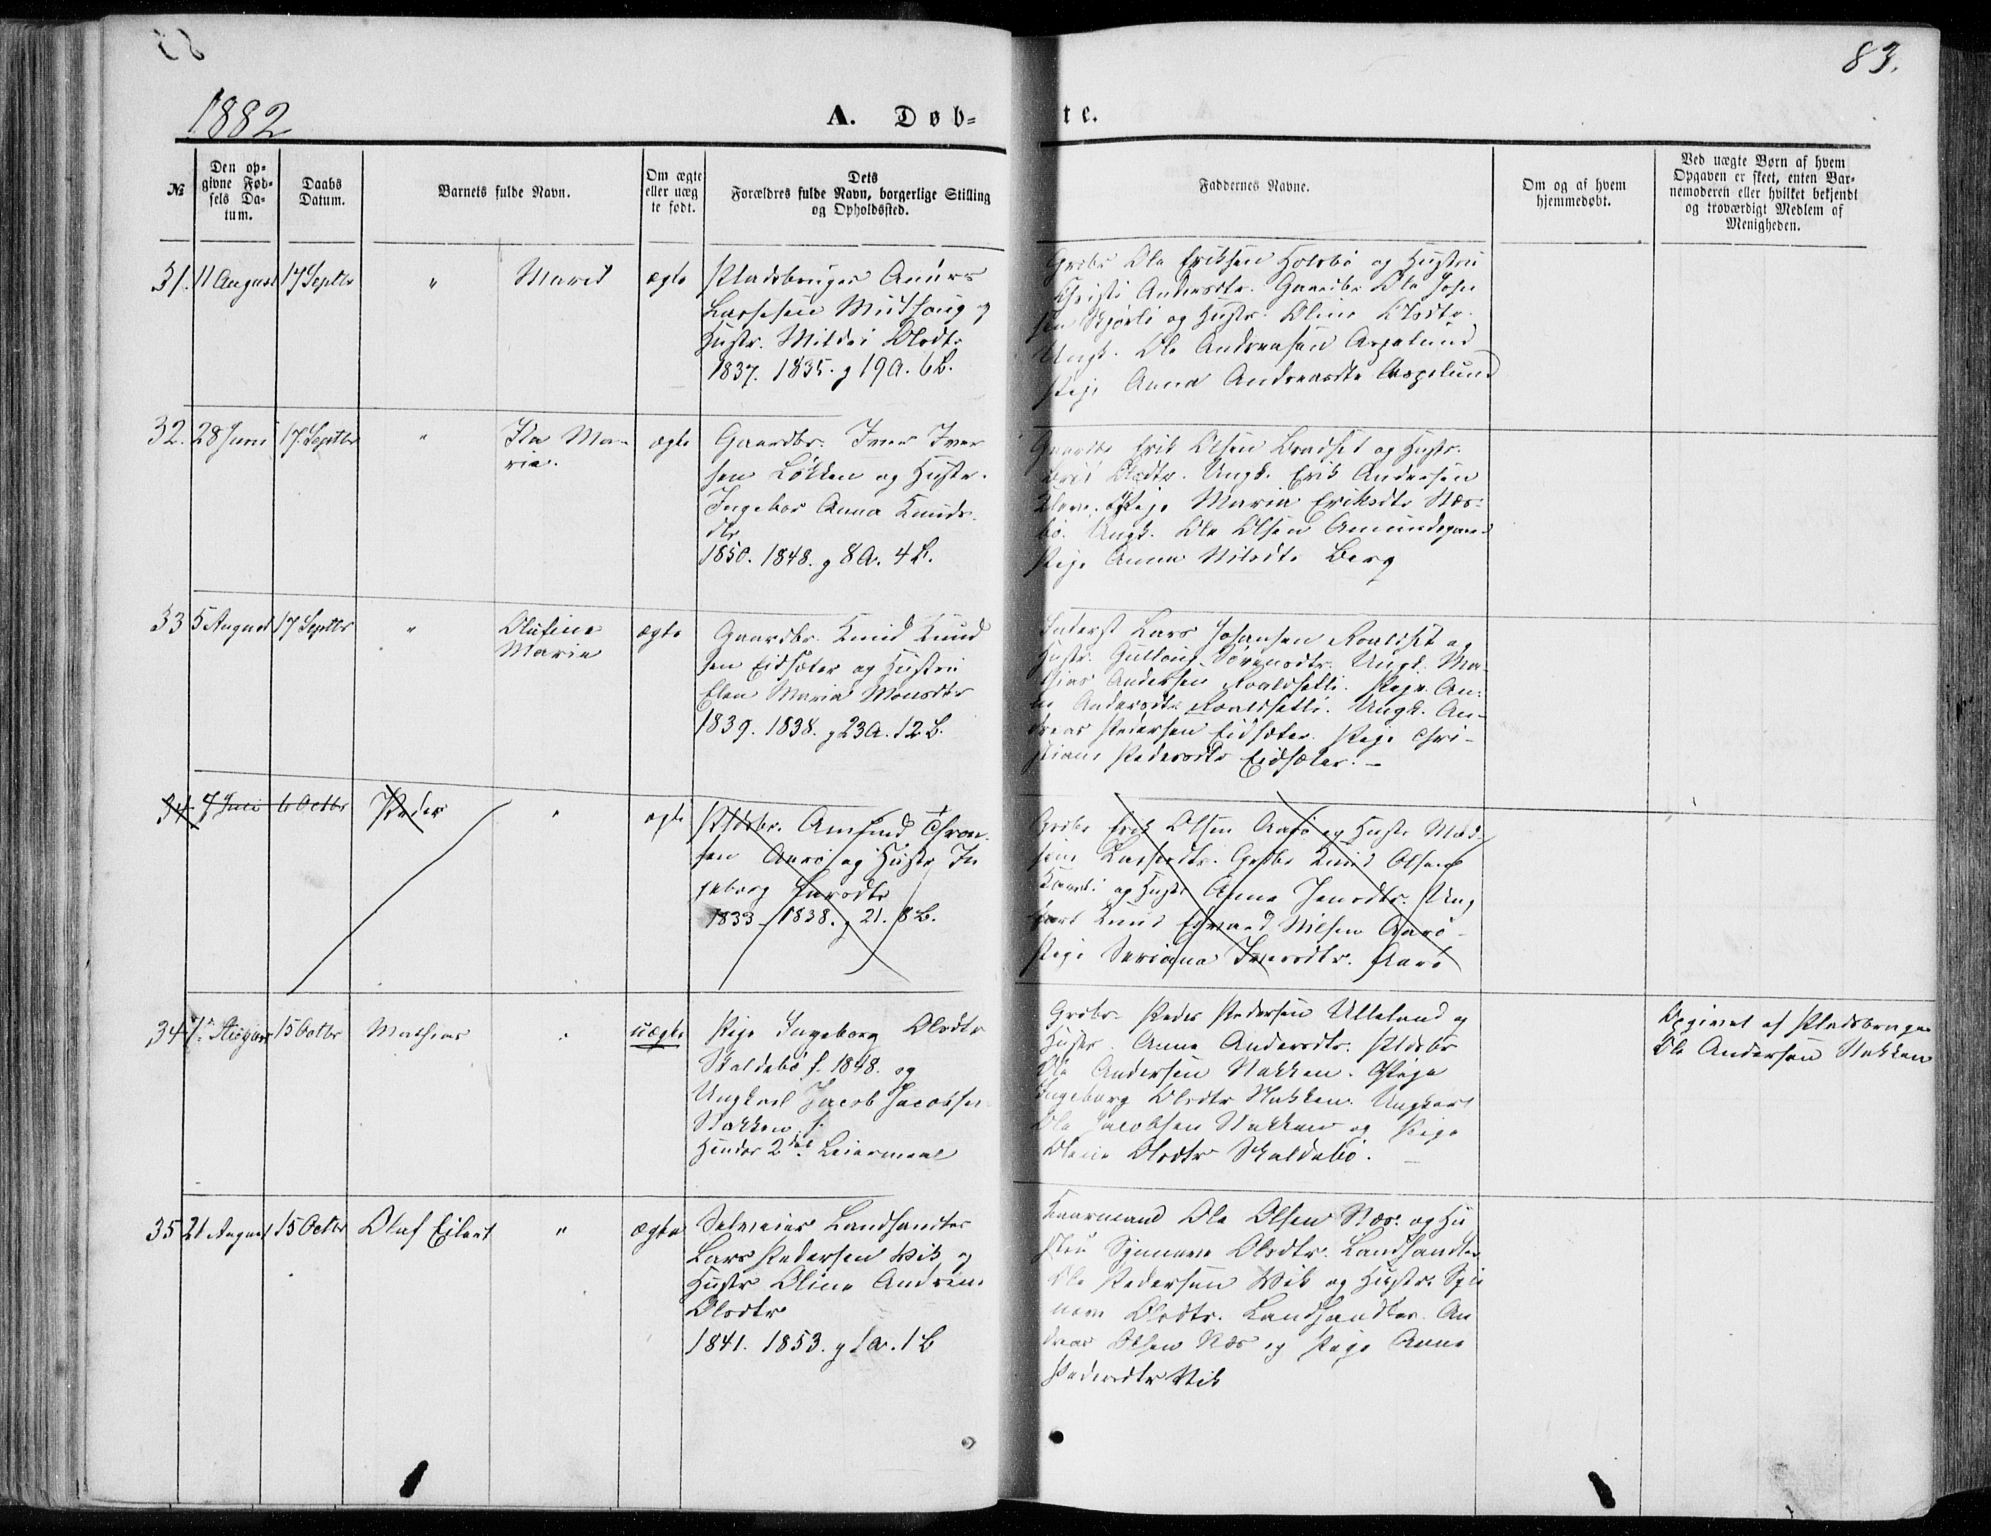 83.
1882
A. Døb=
te.
№
Den op=
givne Fød=
sels Da=
tum.
Daabs
Datum.
Barnets fulde Navn.
Om ægte
eller uæg
te født.
Dets
Forældres fulde Navn, borgerlige Stilling
og Opholdssted.
Faddernes Navne.
Om og af hvem
hjemmedøbt.
Ved uægte Børn af hvem
Opgaven er skeet, enten Bar=
nemoderen eller hvilket bekjendt
og troværdigt Medlem af
Menigheden.
31. 11 August 17 Septbr " Marit ægte
Pladsbruger
Hustr. Olsdtr
1837. 1835. g 19 A. 6 B.
Ole Eriksen og Hustru
Andersdtr. Gaardbr Ole Joh
og Hustr. Oline Olsdtr.
Ungk. Ole Andreasen Aspelund
Pige Anna Andreasdtr Aspelund
32. 28 Juni 17. Septbr " Ma-
ria. ægte
Gaardbr. Iver Iver
sen Løkken og Hustr.
Ingebor Anna Knuds
dtr
1850. 1848. g 8 A. 4 B.
Erik Olsen og Hustr.
Olsdtr. Ungk. Erik Andersen
Pige Maria Eriksdtr Næs-
bø. Ungk. Ole Olsen
Pige Anna Nilsdtr Berg
33 5 August 17 Septbr " Olufine
Marie ægte
Gaardbr. Knud Knud
sen Eidsæter og Hustru
Elen Maria Monsdtr
1839. 1838. g 23 A. 12 B.
Inderst Lars Johansen Roaldset og
Hustr. Sørensdtr. Ungk. Ma-
thias Andersen Roaldsetli. Pige An-
ne Andersdtr Roaldsetli. Ungk. An-
dreas Pedersen Eidsæter. Pige Chri-
stiane Pedersdtr Eidsæter. -
34. 7 Juli 6 Octbr Peder " ægte
Pldsbr. Amund Thron
sen Aarø og Hustr In
geborg Larsdtr
1833 - 1838. g 21. 8 B.
Grdbr Erik Olsen Aarø og Hustr Mad
Larsdtr. Grdbr Knud Olsen
og Hustr Anna Jensdtr. Ung
karl Knud Edvard Nilsen Aarø -
Pige Seriana Iversdtr. Aarø
34 15 Octbr Mathias " uægte
Pige Ingeborg Olsdtr
Skaldebø f. 1848. og
Ungkarl Jacob Jacobsen
Nakken f.
Hendes 2det Leiermaal
Grdbr. Peder Pedersen Ulleland og
Hustr. Anne Andersdtr. Pldsbr
Ole Andersen Nakken. Pige
Ingeborg Olsdtr Nakken. Ungkarl
Ole Jacobsen Nakken og Pige
Olsdtr Skaldebø. -
Opgivet af Pladsbruger
Ole Andersen Nakken
35 21 August 15 Octbr Oluf Eilert " ægte
Selveier Landhandler
Lars Pedersen Wik og
Hustr Oline Andrine
Olsdtr
1841. 1853. g 1 A. 1 B
Kaarmand Ole Olsen Næs og Hu
stru Synneve Olsdtr. Landhandler
Ole Pedersen Wik og Hustr. Syn
neve Olsdtr. Landhandler. An
dreas Olsen Næs og Pige Anne
Pedersdtr Wik